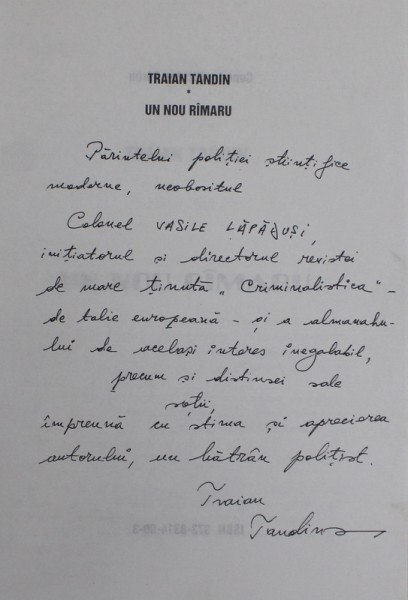 TRAIAN TANDIN
•
UN NOU RÎMARU
Părintelui poliției științifice
moderne, neobositul
Colonel VASILE LĂPĂDUȘI,
inițiatorul și directorul revistei
de mare ținută „Criminalistica" -
de talie europeană - și a almanahu-
lui de același interes inegalabil,
precum și distinsei sale
soții,
împreună cu stima și aprecierea
autorului, un bătrân polițist.
Traian
Tandin